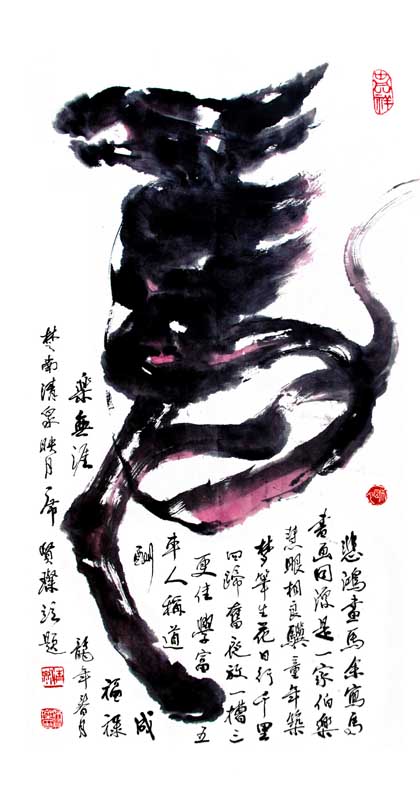 吉祥
悲鸿畫馬余寫馬
書画同源是一家伯樂
慧眼相良驥童年築
梦筆生花日行千里
回歸奮夜放一檔三
更佳學富五
車人稱道
酬
成
福禄
樂無涯
龍年春月
楚南清泉映月斋賢璨題